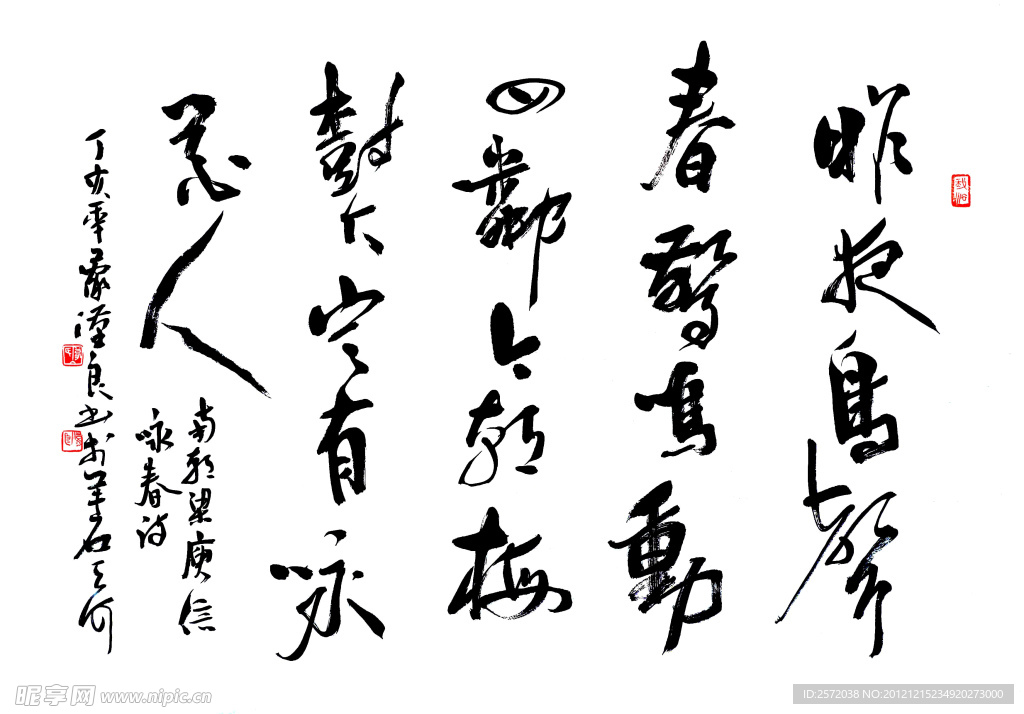 昨夜鳥聲
春驚鳴動
四鄰今朝梅
樹下定有咏
花人
南朝梁庾信
咏春诗
丁亥年
良书于
昵享网 www.nipic.cn
ID:2572038 NO:20121215234920273000